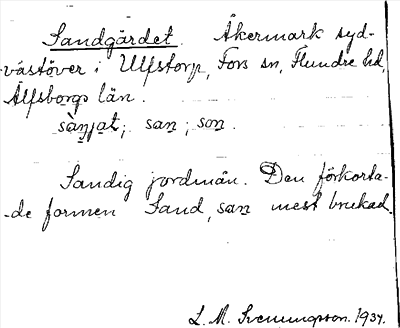 Sandgärdet. Åkermark syd-
västöver i Ulfstorp, Fors sn, Flundre hd,
Älfsborgs län.
san ; son .
Sandig jordmån. Den förkorta-
de formen Sand, san mest brukad.
L. M. Svenungsson. 1934.